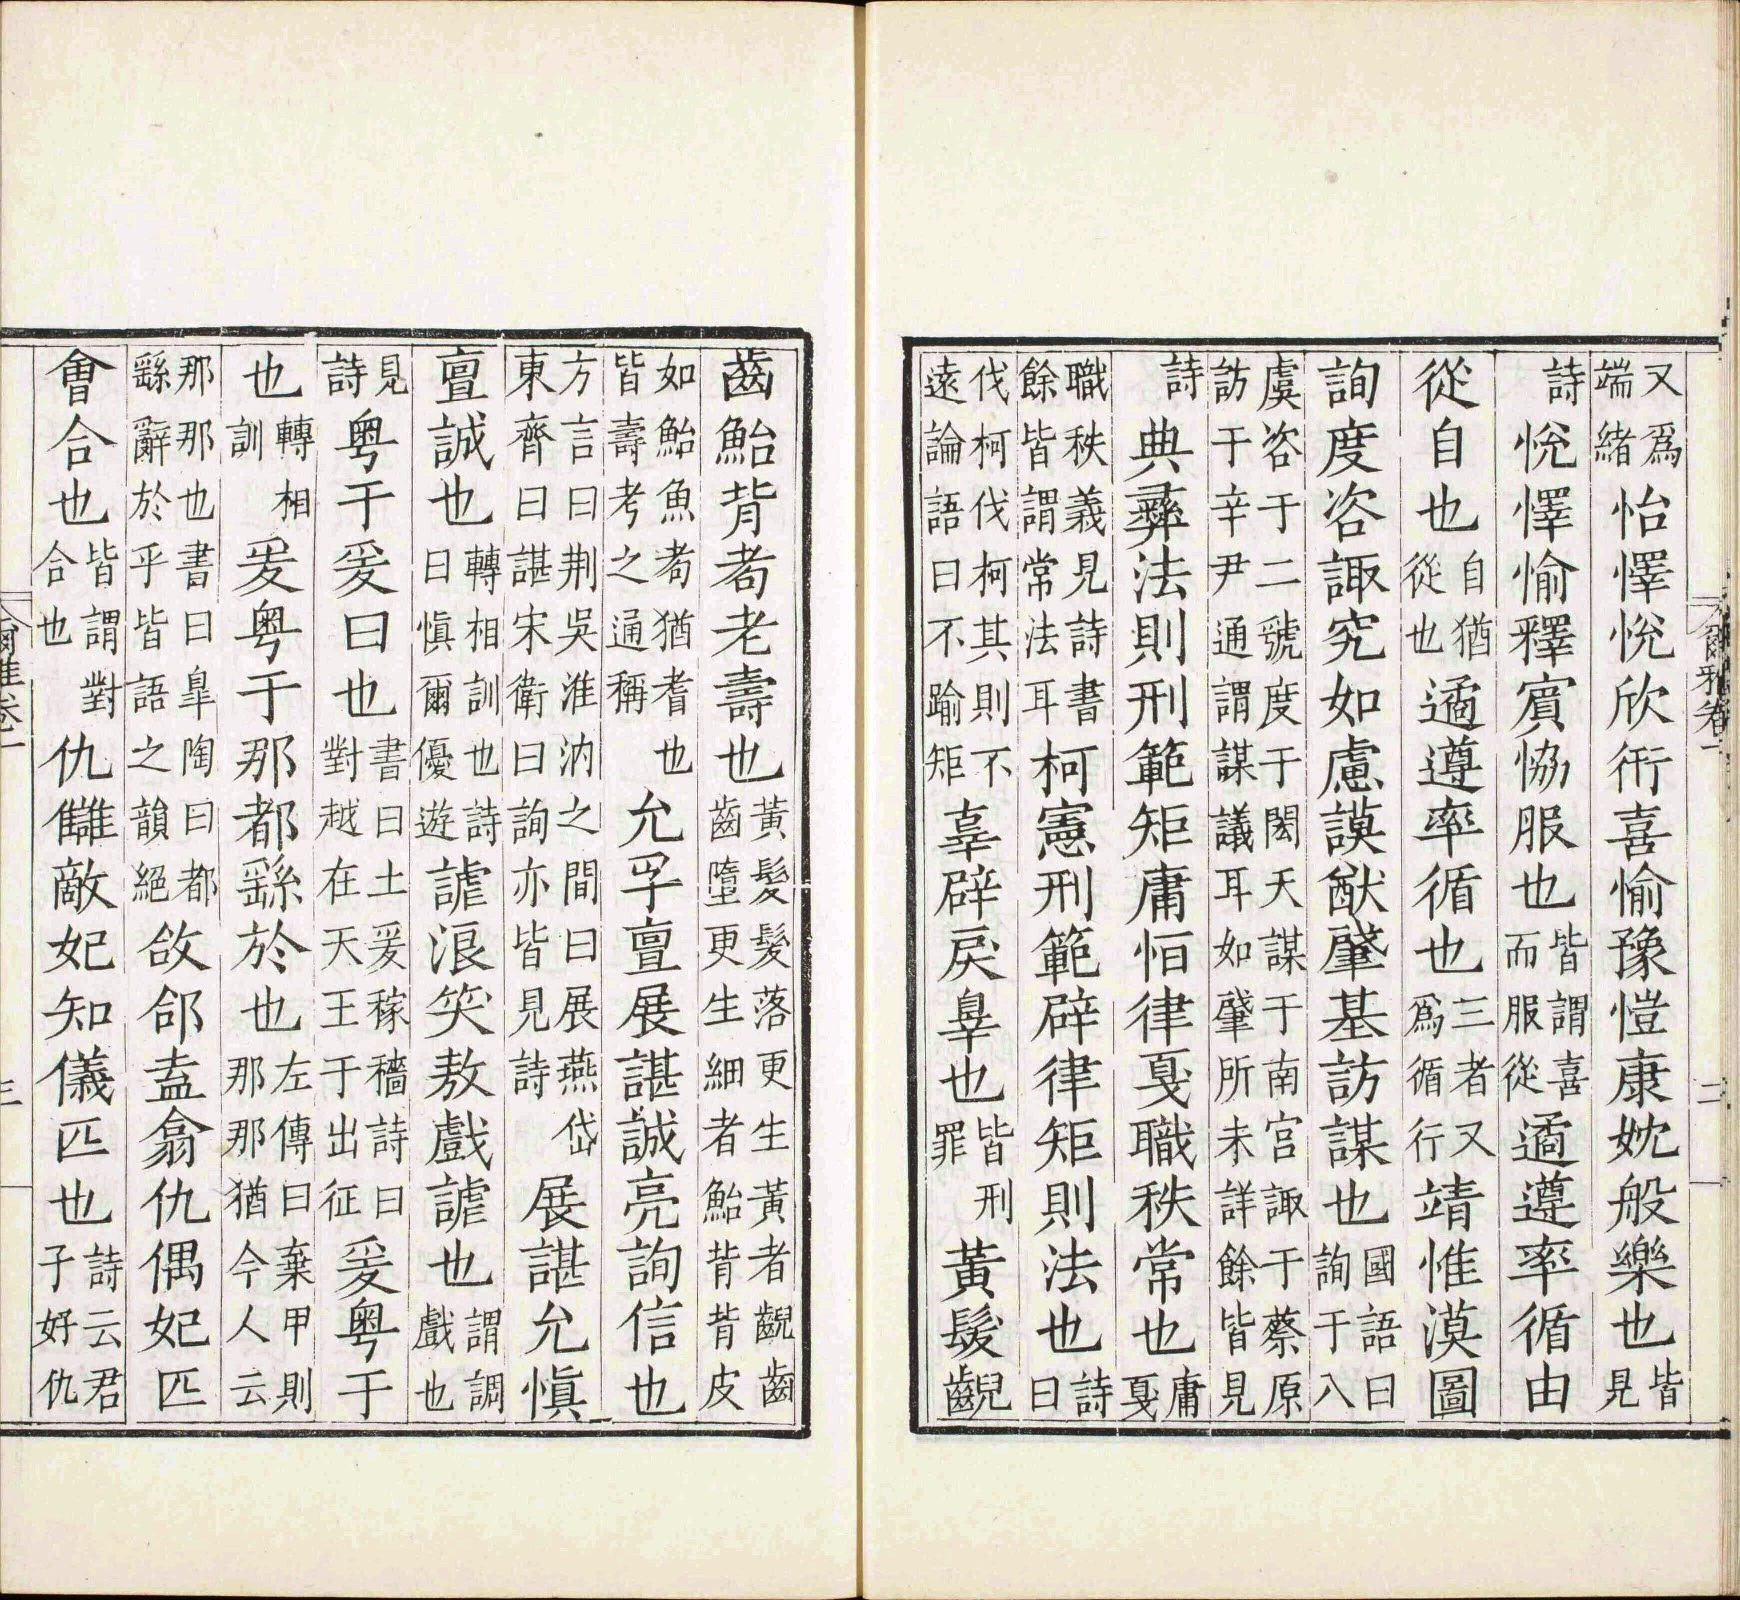 又爲端緒怡懌悅欣衎喜愉豫愷康妉般樂也皆見
詩悅懌愉釋賓協服也皆謂喜而服從遹遵率循由
從自也自猶從也遹遵率循也三者又爲循行靖惟漠圖
詢度咨諏究如慮謨猷肇基訪謀也國語曰詢于八
虞咨于二虢度于閎夭謀于南宮諏于蔡原訪于辛尹通謂謀議耳如肇所未詳餘皆見
詩典彝法則刑範矩庸恒律戛職秩常也庸戛
職秩義見詩書餘皆謂常法耳柯憲刑範辟律矩則法也詩曰
伐柯伐柯其則不遠論語曰不踰矩辜辟戾辠也皆刑罪黃髮齯
爾雅卷一
二
齒鮐背耇老壽也黃髮髮落更生黃者齯齒齒墮更生細者鮐背背皮
如鮐魚耇猶耆也皆壽考之通稱允孚亶展諶誠亮詢信也
方言曰荆吳淮汭之間曰展燕岱東齊曰諶宋衛曰詢亦皆見詩展諶允慎
亶誠也轉相訓也詩曰慎爾優遊謔浪笑敖戲謔也謂調戲也
見詩粤于爰曰也書曰土爰稼穡詩曰對越在天王于出征爰粤于
也轉相訓爰粤于那都繇於也左傳曰棄甲則那那猶今人云
那那也書曰臯陶曰都繇辭於乎皆語之韻絕敆郃盍翕仇偶妃匹
會合也皆謂對合也仇讎敵妃知儀匹也詩云君子好仇
爾雅卷一
三